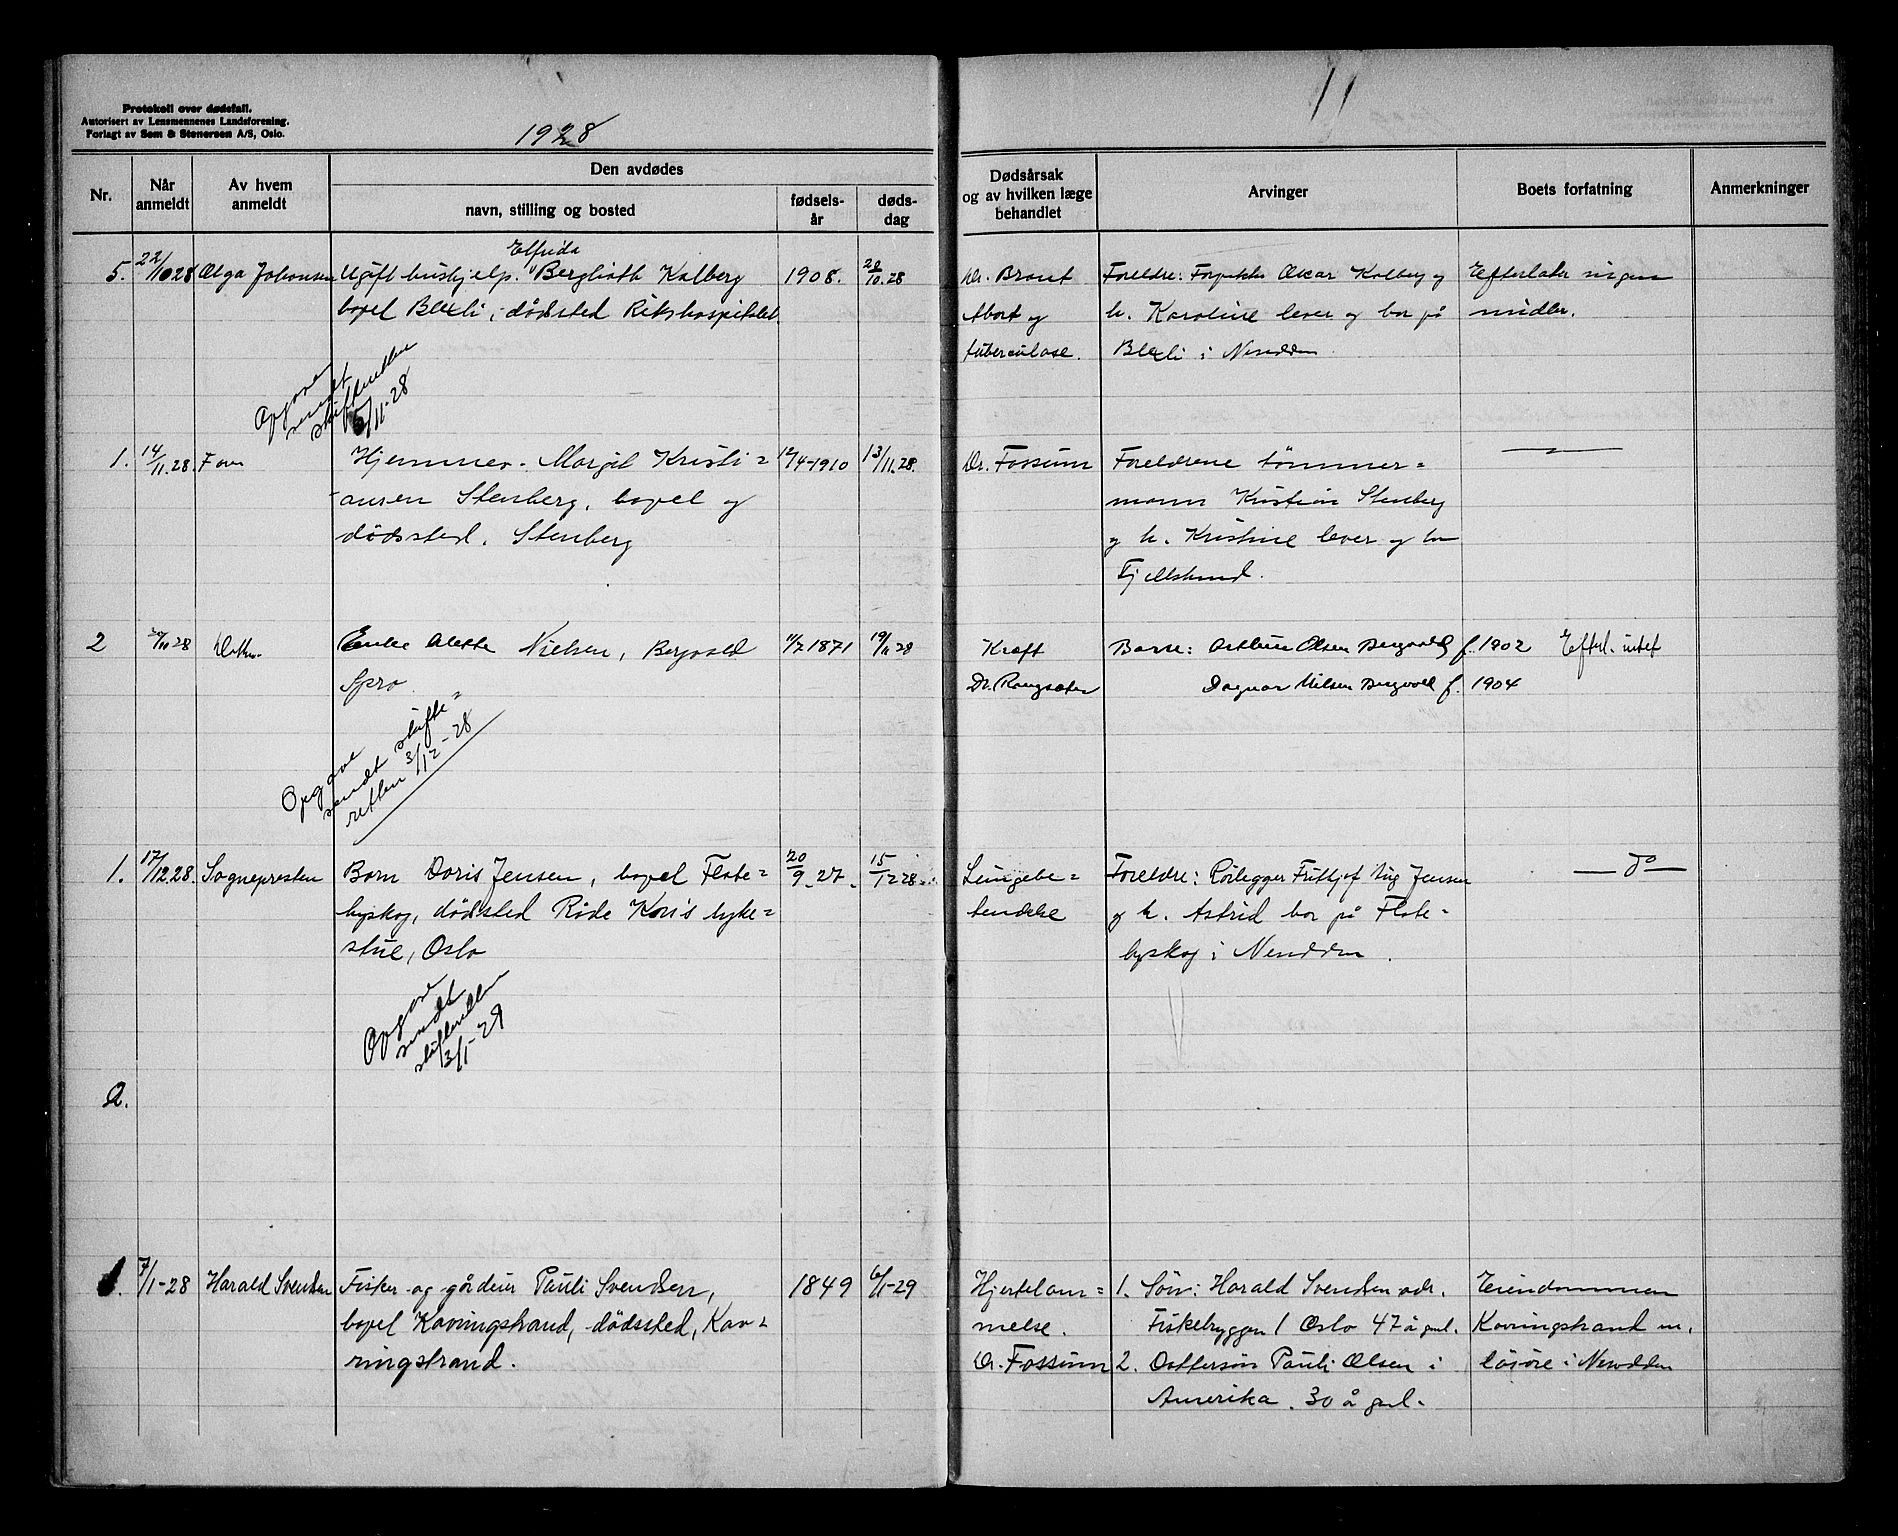 Protokoll over dødsfall.
Autorisert av Lensmennenes Landsforening.
Forlagt av Sem & Stenersen A/S, Oslo.
1928
Nr.
Når anmeldt
Av hvem anmeldt
Den avdødes
navn, stilling og bosted
fødsels-år
døds-dag
5. 22/10 28 Olga Johansen Ugift hushjelp. Elfrida Berglioth Kalberg 1908. 20/10.28
bopel Blexli, dødsted Rikshospitalet.
Opgave
sendt
skifteretten
5/11-28
1. 14/11.28. Faren Hjemmev. Margit Kristi= 12/4-1910 13/11.28.
ansen Stenberg, bopel og
dødssted. Stenberg
2 /11 28 Enke Alette Nielsen, Bergvold 11/7 1871 19/11 28
Spro
Opgave
sendt skifte=
retten 3/12-28
1. 17/12.28. Sognepresten Barn Doris Jensen, bopel Flate= 20/9.27. 15/12 28
byskog, dødsted Røde Kors syke=
stue, Oslo
Opgave
sendt
skifteretten
3/1-29
2.
1. 7/1-28 Harald Svendsen Fisker og gårdeier Pauli Svendsen, 1849 6/1-29
bopel Kavringstrand, dødssted, Kav=
ringstrand.
11
Dødsårsak
og av hvilken læge
behandlet
Arvinger
Boets forfatning
Anmerkninger
Dr. Brandt Foreldre: Oscar Kalberg og Efterlater ingen
Abort og h. Karoline lever og bor på midler.
tuberculose. Blexli i Nesodden
Dr. Fossum Foreldrene tømmer=
mann Kristian Stenberg
og h. Kristine lever og bor
Fjellstrand.
Kræft Barn: Arthur Olsen Bergvoll f. 1902 Efterl. intet
Dr. Rangsæter Dagmar Nielsen Bergvoll f. 1904
Lungebe= Foreldre: Rørlegger Frithjof Jensen — do —
tendelse og h. Astrid bor på Flate=
byskog i Nesodden.
Hjertelam= 1. Søn: Harald Svendsen adr. Eiendommen
melse. Fiskebryggen 1 Oslo 47 å gml. Kavringstrand m.
Dr. Fossum 2. Dattersøn Pauli Olsen i løsøre i Nesodden
Amerika. 30 å gml.